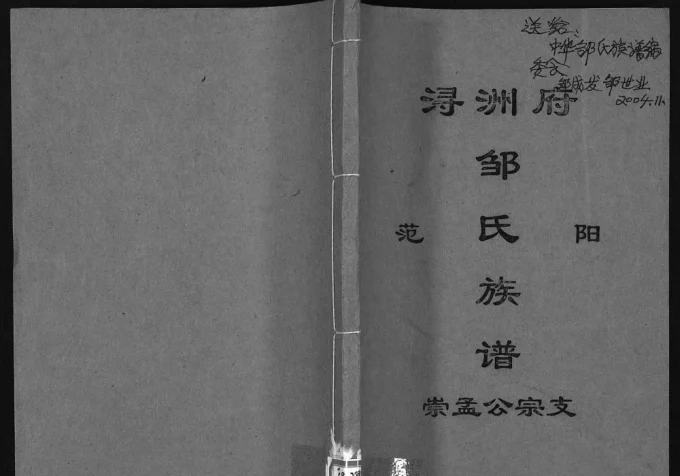 送给:
中华邹氏族谱编
委会
邹成发 邹世业
2004.11.
浔洲府
邹氏族谱
范 阳
崇孟公宗支